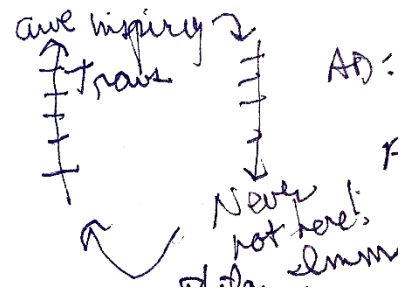 awe inspiring
Trans
AD:
Never
not here!
Imm